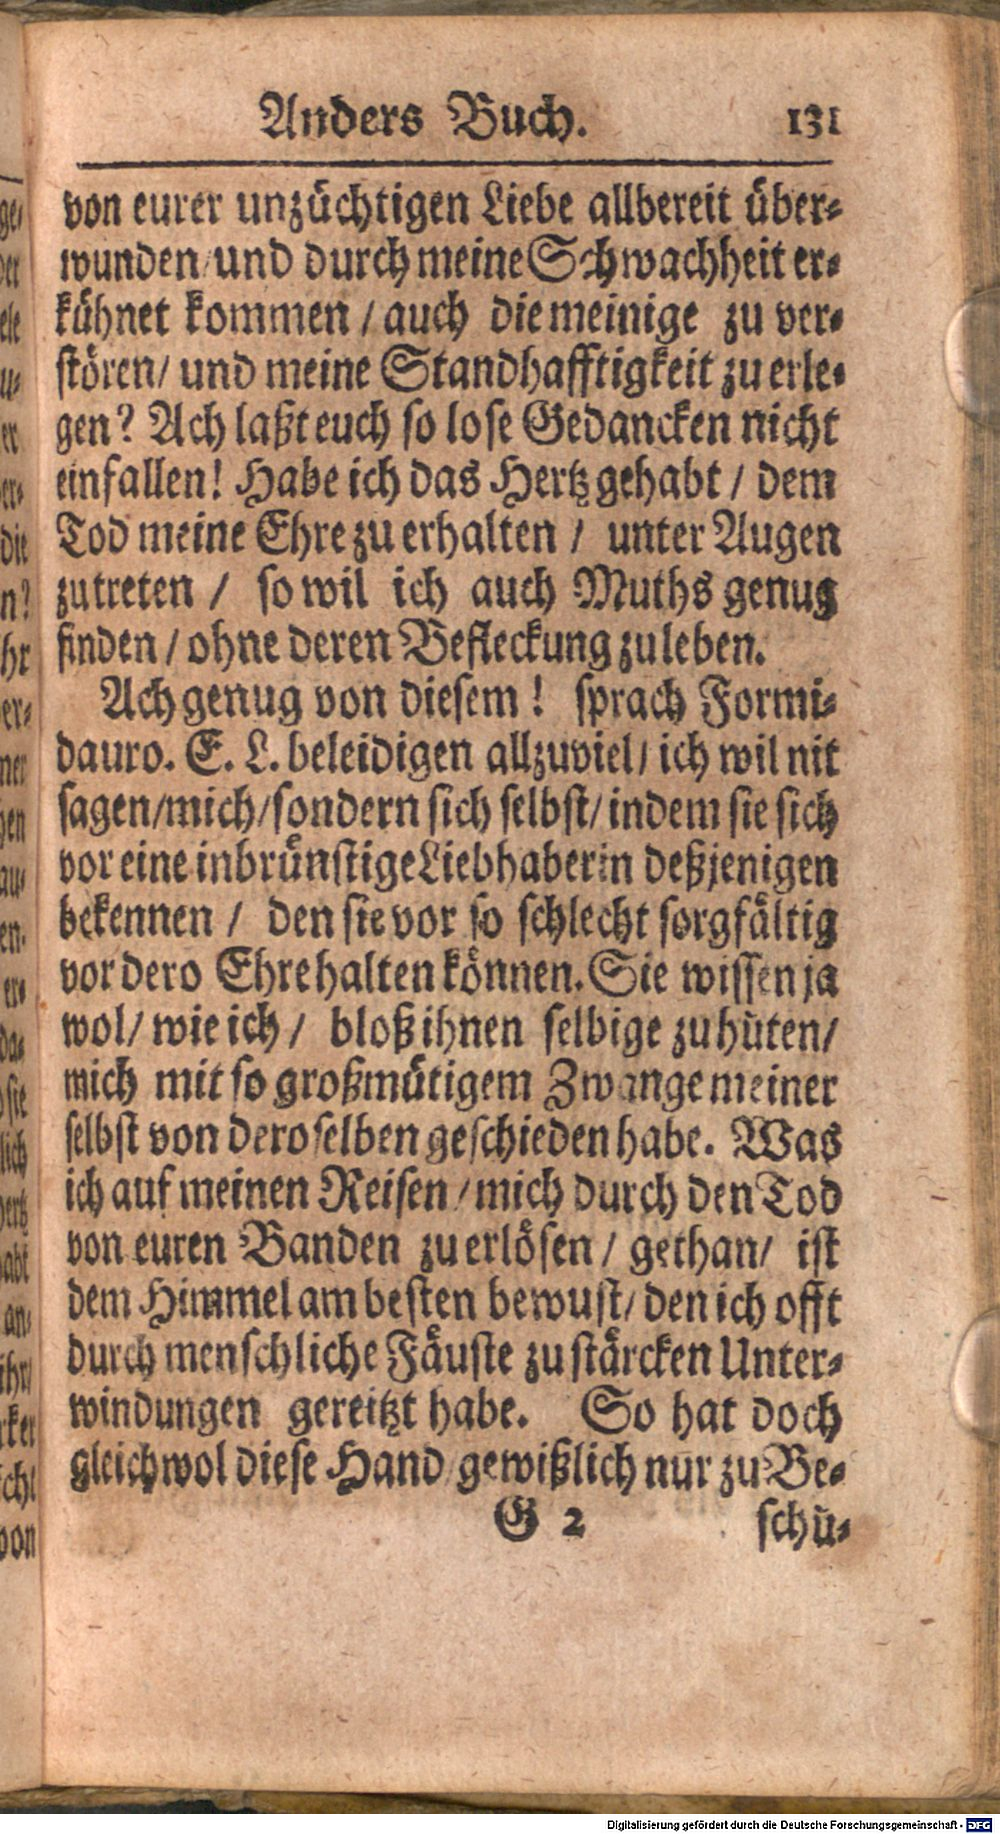 Anders Buch. 131
von eurer unzüchtigen Liebe allbereit über-
wunden/ und durch meine Schwachheit er-
kühnet kommen / auch die meinige zu ver-
stören/ und meine Standhafftigkeit zu erle-
gen? Ach laßt euch so lose Gedancken nicht
einfallen! Habe ich das Hertz gehabt / dem
Tod meine Ehre zu erhalten / unter Augen
zutreten / so wil ich auch Muths genug
finden / ohne deren Befleckung zu leben.
Ach genug von diesem! sprach Formi-
dauro. E. L. beleidigen allzuviel/ ich wil nit
sagen/mich/sondern sich selbst/ indem sie sich
vor eine inbrünstige Liebhaberin deßjenigen
bekennen / den sie vor so schlecht sorgfältig
vor dero Ehre halten können. Sie wissen ja
wol/ wie ich / bloß ihnen selbige zu hüten/
mich mit so großmütigem Zwange meiner
selbst von deroselben geschieden habe. Was
ich auf meinen Reisen / mich durch den Tod
von euren Banden zu erlösen / gethan/ ist
dem Himmel am besten bewust/ den ich offt
durch menschliche Fäuste zu stärcken Unter-
windungen gereitzt habe. So hat doch
gleichwol diese Hand gewißlich nur zu Be-
G 2 schü-
ge/
der
ele
u-
er
er-
die
n?
hr
er-
ner
hen
au-
en.
er-
da-
sie
lich
hertz
habt
an-
ihr/
rker
ich/
von
Digitalisierung gefördert durch die Deutsche Forschungsgemeinschaft - DFG